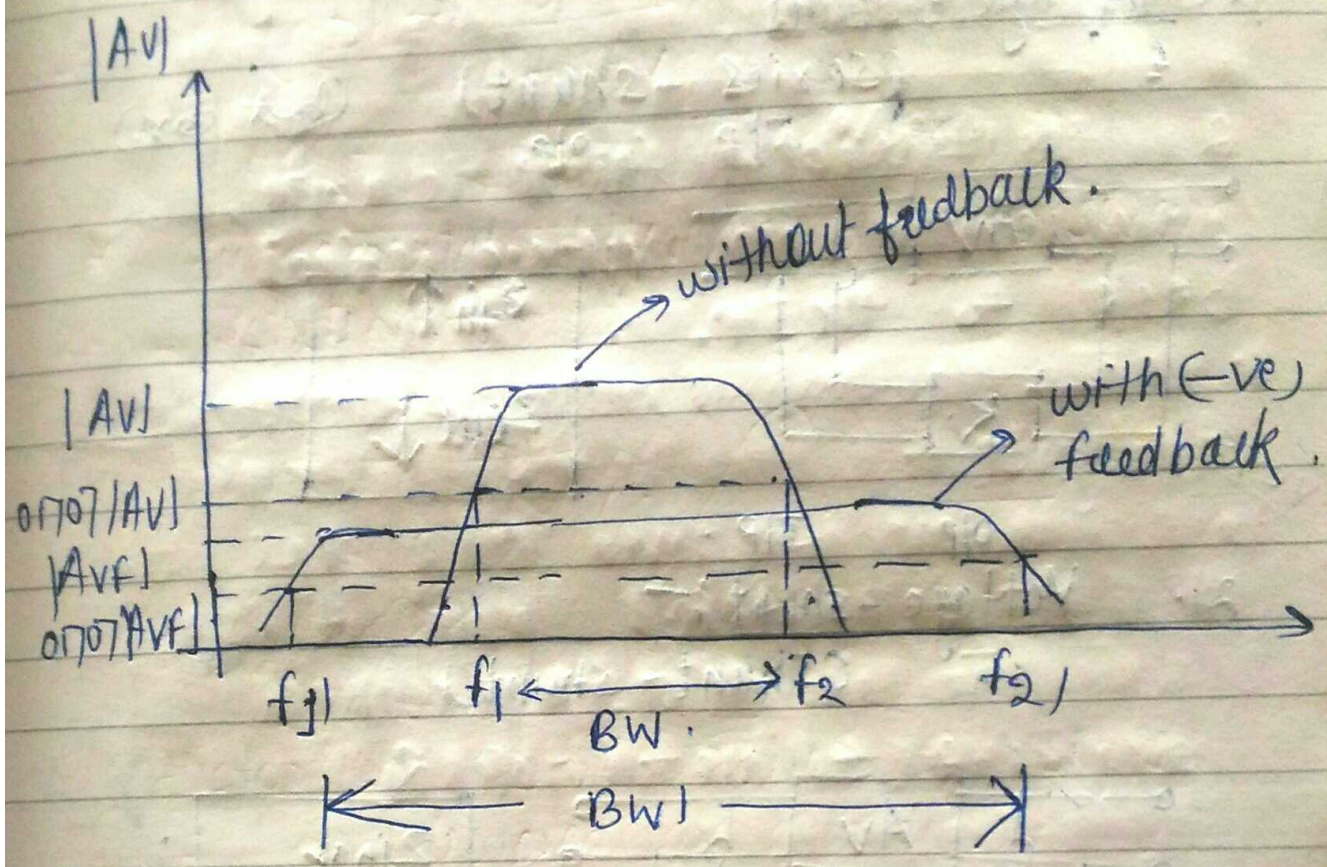 |Av|
without feedback.
with (-ve)
feedback.
|Av|
0.707|Av|
|Avf|
0.707|Avf|
f1'
f1
f2
f2'
BW.
BW'